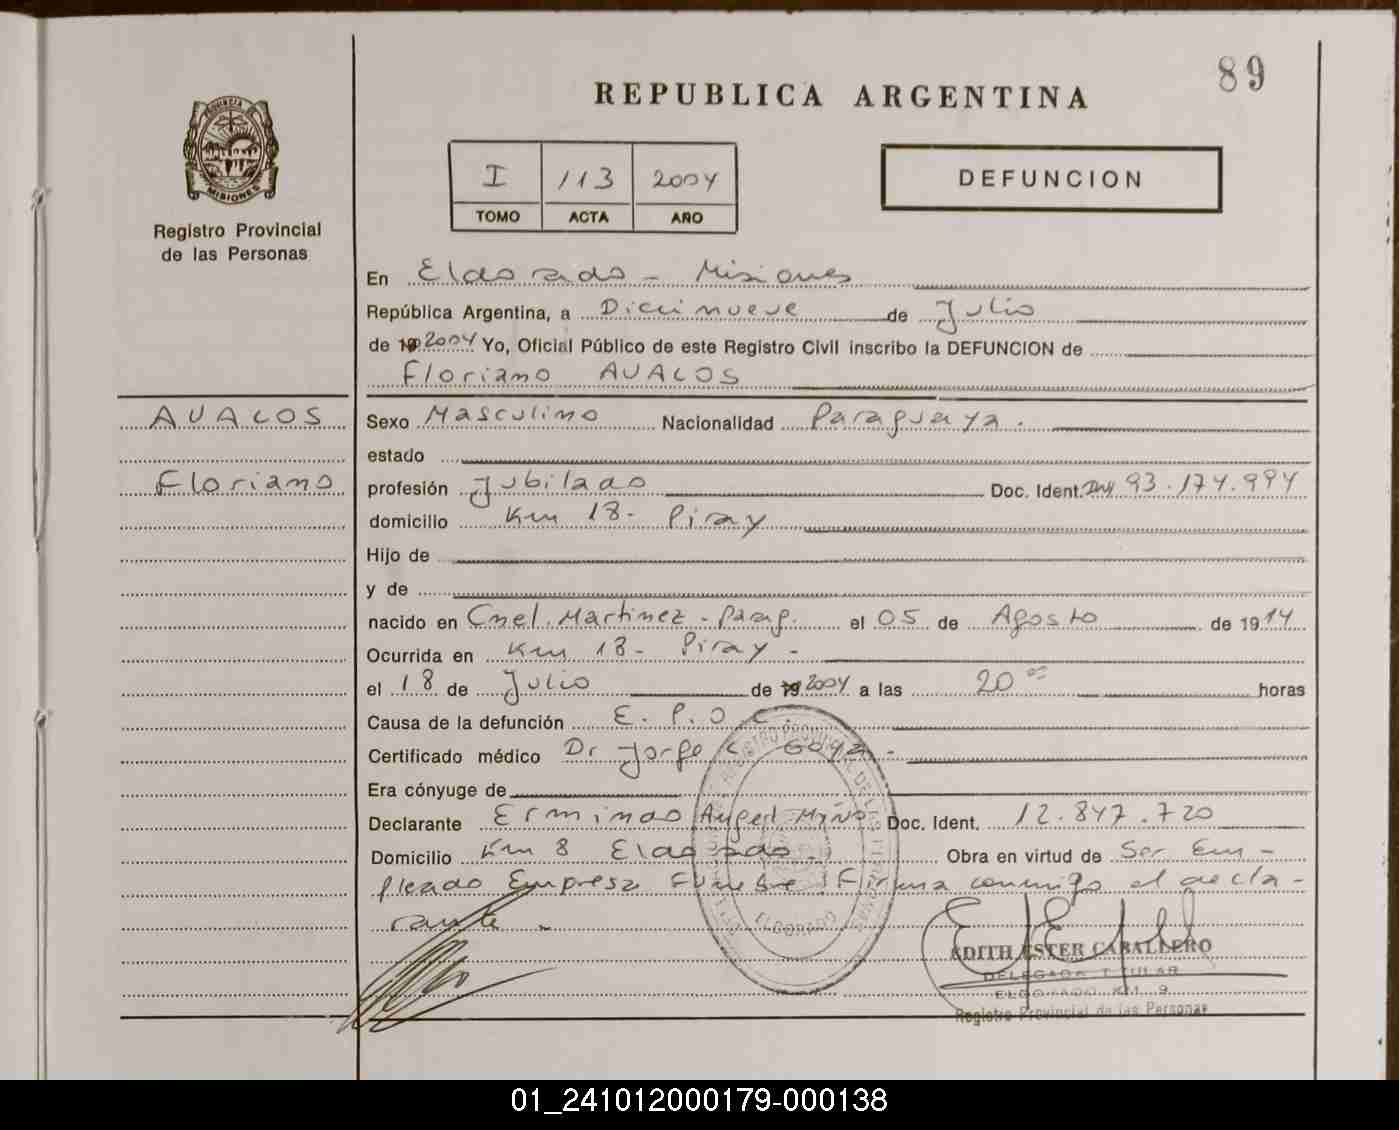 89
REPUBLICA ARGENTINA
PROVINCIA DE
MISIONES
Registro Provincial
de las Personas
I 113 2004
TOMO ACTA AÑO
DEFUNCION
En Eldorado - Misiones
República Argentina, a Diecinueve de Julio
de 19 2004 Yo, Oficial Público de este Registro Civil inscribo la DEFUNCION de
Floriano AVALOS
AVALOS
Floriano
Sexo Masculino Nacionalidad Paraguaya.
estado
profesión Jubilado Doc. Ident. DNI 93.174.994
domicilio Km 18- Piray
Hijo de
y de
nacido en Cnel. Martinez - Parag. el 05 de Agosto de 1914
Ocurrida en Km 18- Piray -
el 18 de Julio de 19 2004 a las 20 00 horas
Causa de la defunción E.P.O.C.
Certificado médico Dr Jorge C. Goya -
Era cónyuge de
Declarante Ermindo Angel Miño Doc. Ident. 12.847.720
Domicilio Km 8 Eldorado. Obra en virtud de Ser Em-
pleado Empresa Funebre. Firma conmigo el decla-
rante -
REGISTRO PROVINCIAL DE LAS PERSONAS
ELDORADO
EDITH ESTER CABALLERO
DELEGADA TITULAR
ELDORADO KM. 9
Registro Provincial de las Personas
01_241012000179-000138